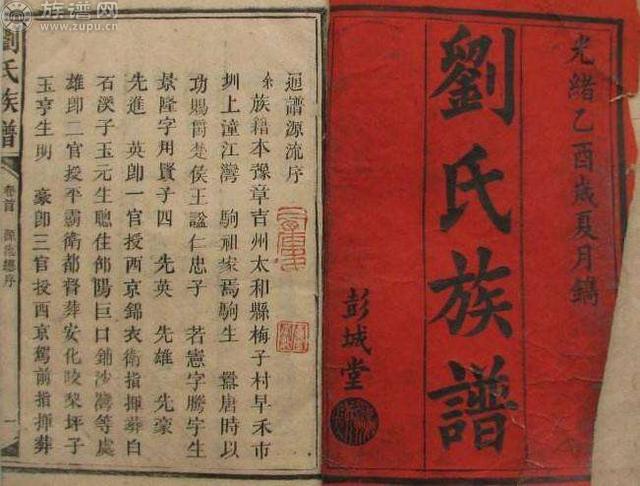 光緒乙酉歲夏月鐫
劉氏族譜
彭城堂
通譜源流序
余族籍本豫章吉州太和縣梅子村早禾市
圳上潼江灣　駒祖家焉駒生　囂唐時以
功賜爵楚侯王謚仁忠子　若憲字騰宇生
景隆字用賢子四　先英　先雄　先豪
先進　英卽一官授西京錦衣衛指揮葬白
石溪子玉元生聰住邵陽巨口鋪沙灣等處
雄卽二官授平霸衛都督葬安化咬梨坪子
玉亨生明　豪卽三官授西京駕前指揮葬
劉氏族譜
卷首
源流總序
一
族谱网
www.zupu.cn